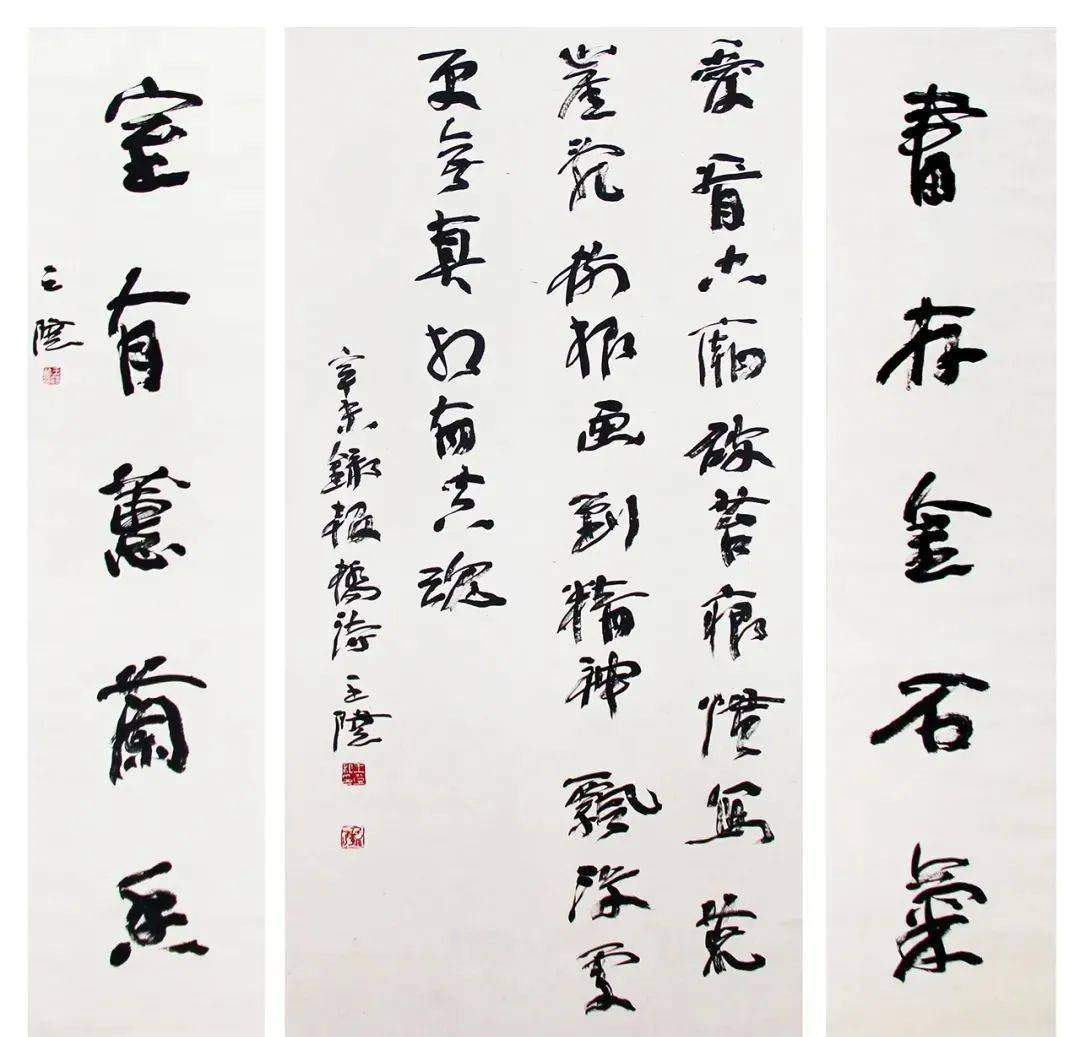 書存金石氣
愛看古廟破苔痕慣寫荒
崖亂樹根画到精神飄没處
更無真相有真魂
辛未錄板橋詩 王澄
室有蕙蘭香
王澄